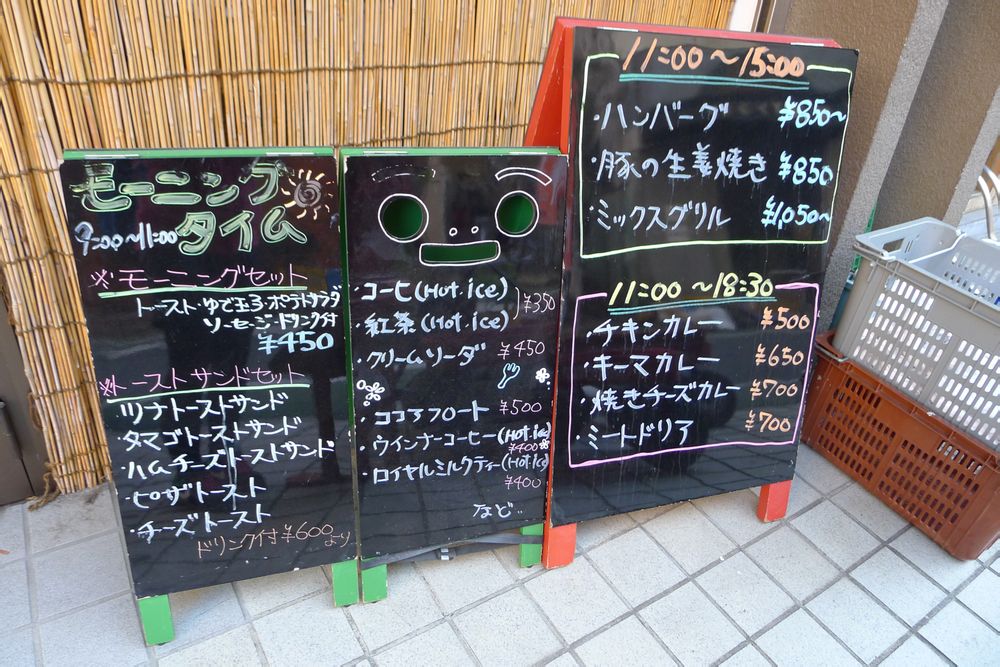 モーニング
タイム
9:00〜11:00
※モーニングセット
トースト・ゆで玉子・ポテトサラダ
ソーセージ・ドリンク付
¥450
※トーストサンドセット
・ツナトーストサンド
・タマゴトーストサンド
・ハムチーズトーストサンド
・ピザトースト
・チーズトースト
ドリンク付¥600より
・コーヒ(Hot.ice)
・紅茶(Hot.ice)
¥350
・クリームソーダ ¥450
・ココアフロート ¥500
・ウインナーコーヒー(Hot.ice)
¥400
・ロイヤルミルクティー(Hot.ice)
¥400
など..
11:00〜15:00
・ハンバーグ ¥850〜
・豚の生姜焼き ¥850
・ミックスグリル ¥1,050〜
11:00〜18:30
・チキンカレー ¥500
・キーマカレー ¥650
・焼きチーズカレー ¥700
・ミートドリア ¥700